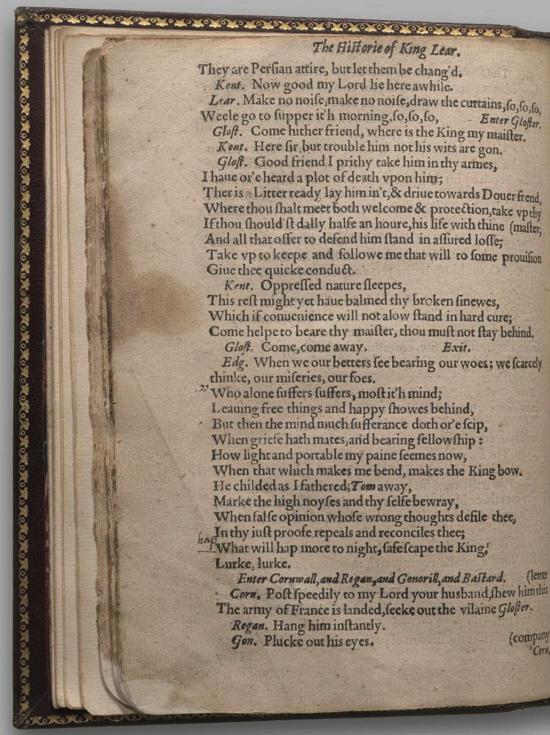 The Historie of King Lear.
They are Persian attire, but let them be chang'd.
Kent. Now good my Lord lie here awhile.
Lear. Make no noise, make no noise, draw the curtains, so, so, so,
Weele go to supper it'h morning, so, so, so, Enter Gloster.
Glost. Come hither friend, where is the King my maister.
Kent. Here sir, but trouble him not his wits are gon.
Glost. Good friend I prithy take him in thy armes,
I haue or'e heard a plot of death vpon him;
Ther is a Litter ready lay him in't, & driue towards Douer frend,
Where thou shalt meet both welcome & protection, take vp thy
If thou should'st dally halfe an houre, his life with thine (maister,
And all that offer to defend him stand in assured losse;
Take vp to keepe and followe me that will to some prouision
Giue thee quicke conduct.
Kent. Oppressed nature sleepes,
This rest might yet haue balmed thy broken sinewes,
Which if conuenience will not alow stand in hard cure;
Come helpe to beare thy maister, thou must not stay behind.
Glost. Come, come away. Exit.
Edg. When we our betters see bearing our woes; we scarcely
thinke, our miseries, our foes.
" Who alone suffers suffers, most it'h mind;
Leauing free things and happy showes behind,
But then the mind much sufferance doth or'e scip,
When griefe hath mates, and bearing fellowship:
How light and portable my paine seemes now,
When that which makes me bend, makes the King bow.
He childed as I fathered; Tom away,
Marke the high noyses and thy selfe bewray,
When false opinion whose wrong thoughts defile thee,
In thy iust proofe repeals and reconciles thee;
What will hap more to night, safe scape the King,
Lurke, lurke.
Enter Cornwall, and Regan, and Gonorill, and Bastard. (letter
Corn. Post speedily to my Lord your husband, shew him this
The army of France is landed, seeke out the vilaine Gloster.
Regan. Hang him instantly.
Gon. Plucke out his eyes. (company
Corn.